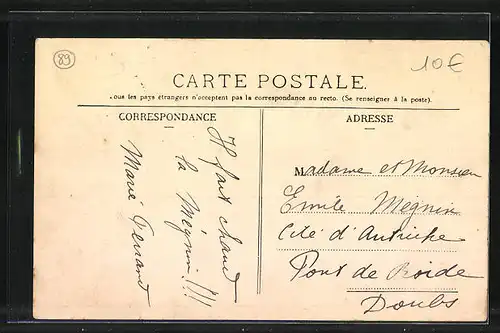 89
10€
CARTE POSTALE.
Tous les pays étrangers n'acceptent pas la correspondance au recto. (Se renseigner à la poste).
CORRESPONDANCE
ADRESSE
Il fait chaud
la Mégnin !!!
Marie Fernand
Madame et Monsieur
Emile Mégnin
Cité d'Autriche
Pont de Roide
Doubs